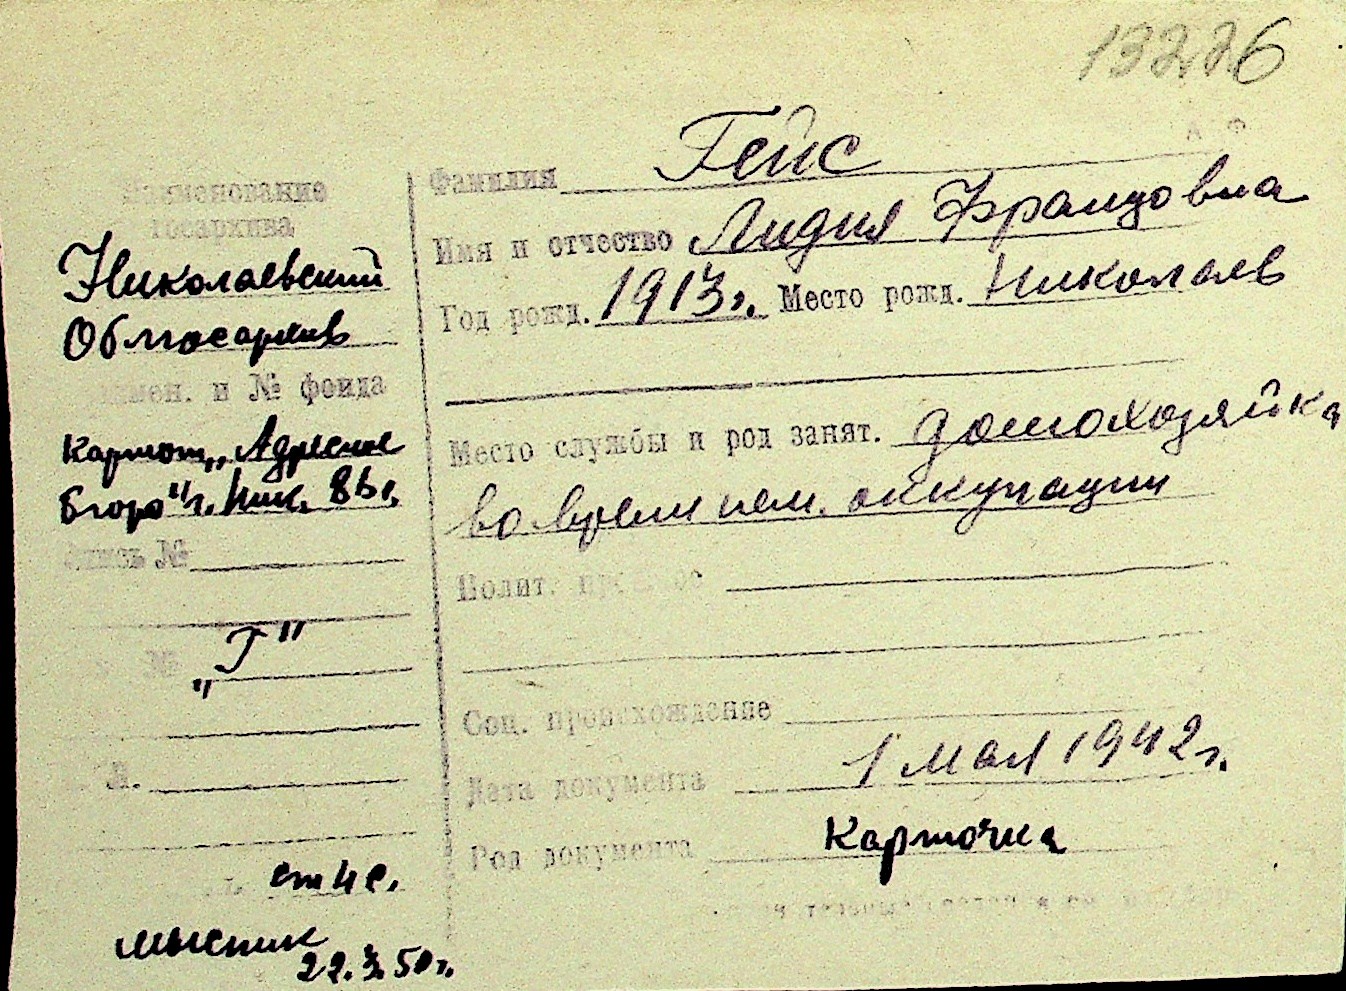 13226
А Ф
Наименование
госархива
Николаевский
Облгосархив
Наимен. и № фонда
Картот. „Адресное
бюро" г. Ник.
Опись №
№ „Г"
Л.
мыстик
22. 50 г.
Фамилия Гейс
Имя и отчество Лидия Францовна
Год рожд. 1913 г. Место рожд. Николаев
Место службы и род занят. домохозяйка
во время нем. оккупации
Полит.
Соц. происхождение
Дата документа 1 мая 1942 г.
Род документа Карточка